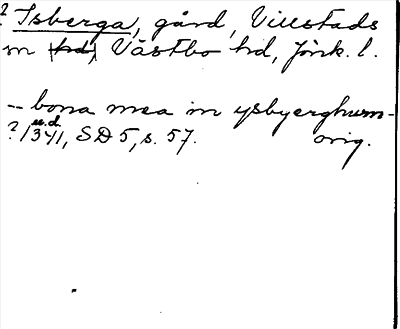 ? Isberga, gård, Villstads
sn (hd), Västbo hd, Jönk. l.
-- bona mea in ysbyerghum -
u.d.
? 1341, SD 5, s. 57. orig.